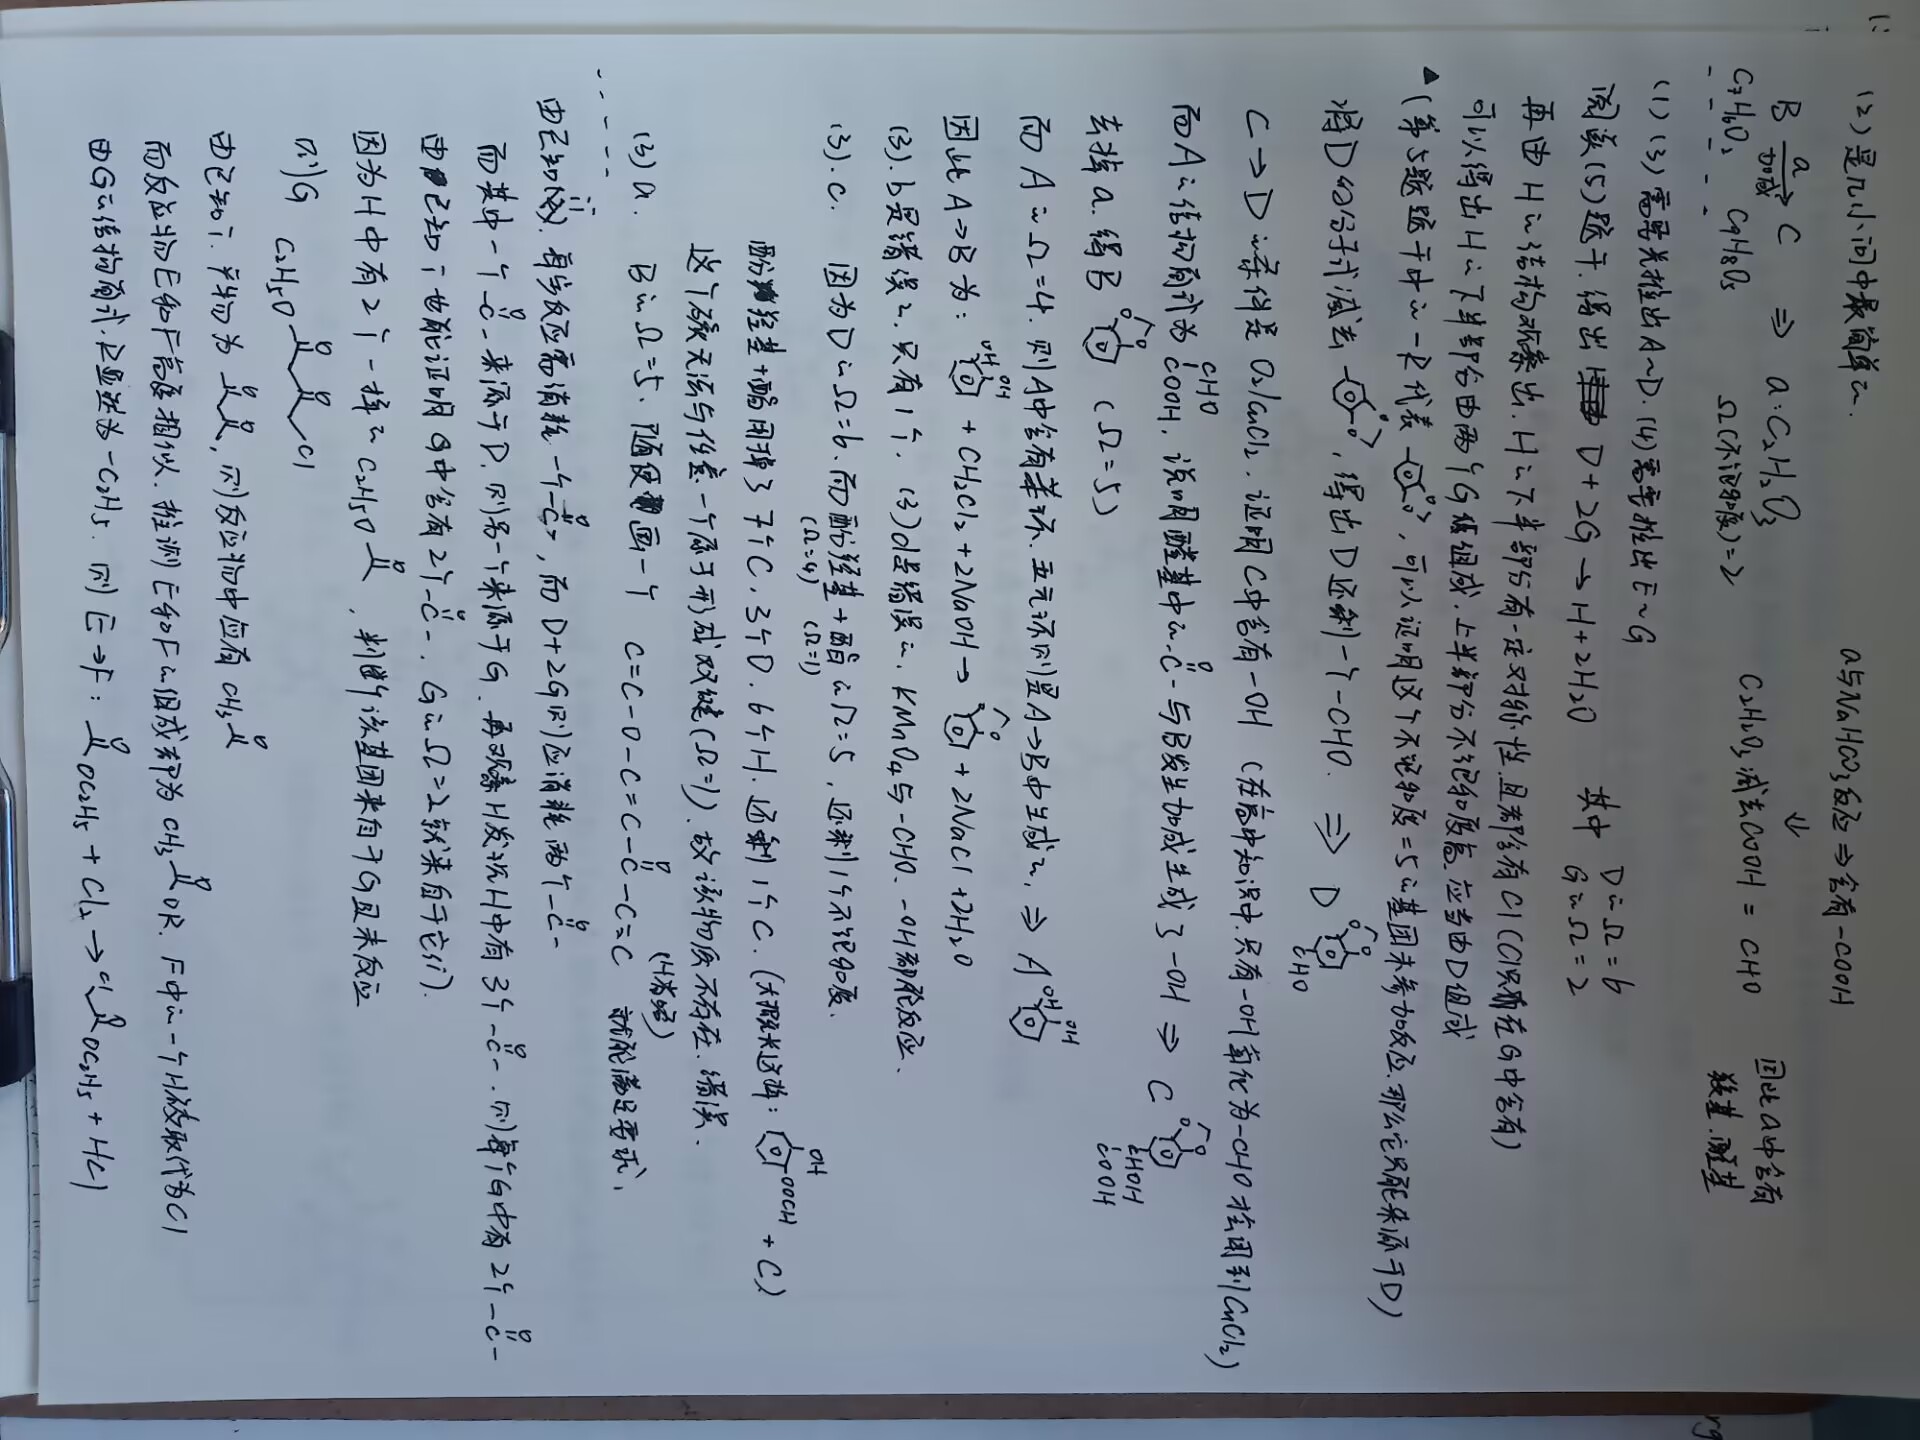 (2)是几小问中最简单的.
a与NaHCO₃反应⇒含有-COOH
B —a/加成→ C ⇒ a: C₂H₂O₃
C₇H₆O₂ C₉H₈O₅ Ω(不饱和度)=2
C₂H₂O₃减去COOH = CHO
因此a中含有
羧基.醛基
(1)(3)需要先推出A~D. (4)需要推出E~G
阅读(5)题干.得出 D+2G→H+2H₂O 其中 D的Ω=6
G的Ω=2
再由H的结构观察出.H的下半部分有一定对称性且都含有Cl(Cl只有在G中含有)
可以得出H的下半部分由两个G组成.上半部分不饱和度高.应当由D组成
▲(第5题题干中的-R代表 O O,可以证明这个不饱和度=5的基团未参加反应.那么它只能来源于D)
将D的分子式减去 O O,得出D还剩一个-CHO. ⇒ D O O CHO
C→D的条件是O₂/CuCl₂.证明C中含有-OH (在高中知识中.只有-OH氧化为-CHO才会用到CuCl₂)
而A的结构简式为 CHO COOH,说明醛基中的 O -C- 与B发生加成生成了-OH ⇒ C O O CHOH COOH
去掉a.得B O O (Ω=5)
而A的Ω=4.则A中含有苯环.五元环则是A→B中生成的,⇒ A OH OH
因此A→B为: OH OH + CH₂Cl₂+2NaOH→ O O +2NaCl+2H₂O
(3).b是错误的.只有1个. (3)d是错误的.KMnO₄与-CHO.-OH都能反应.
(3).c. 因为D的Ω=6.而酚羟基+酯的Ω=5,还剩1个不饱和度.
(Ω=4) (Ω=1)
酚羟基+酯用掉了7个C.3个O.6个H.还剩1个C.(大概长这样: OH OOCH +C)
这个碳无法与任意一个原子形成双键(Ω=1).故该物质不存在.错误.
(3)a. B的Ω=5.随便画一个 C=C-O-C=C- O C -C=C 就能满足要求,
(H省略)
由已知ii.每分反应需消耗一个 O -C-,而D+2G则应消耗两个 O -C-
而其中一个 O -C- 来源于D.则另一个来源于G.再观察H发现H中有3个 O -C-.则每个G中有2个 O -C-
由已知i也能证明G中含有2个 O -C-.G的Ω=2就来自于它们).
因为H中有2个一样的C₂H₅O O,判断该基团来自于G且未反应
则G C₂H₅O O O Cl
由已知i.产物为 O O,则反应物中应有CH₃ O
而反应物E和F高度相似.推测E和F的组成都为CH₃ O OR.F中的一个H被取代为Cl
由G的结构简式.R显然为-C₂H₅.则E→F: O OC₂H₅+Cl₂→Cl O OC₂H₅+HCl